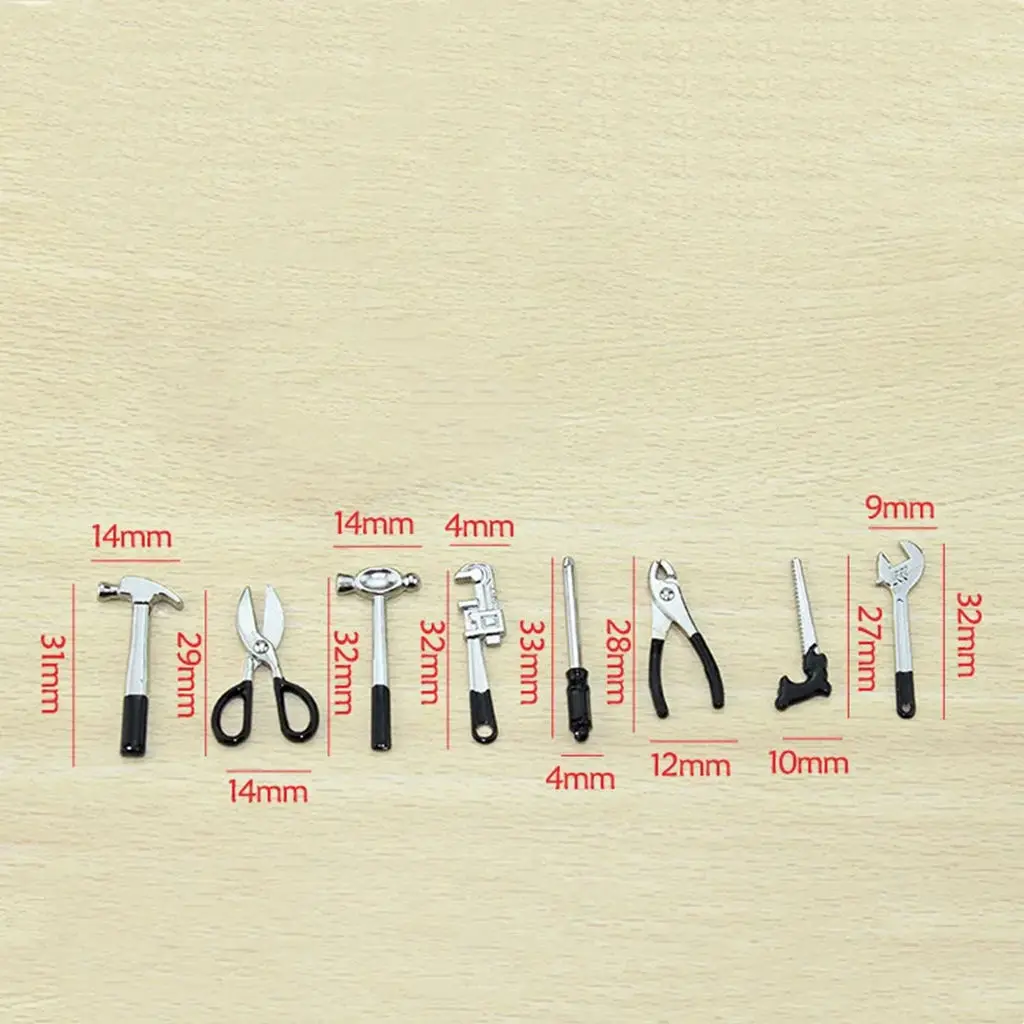 14mm
31mm
29mm
14mm
14mm
32mm
4mm
32mm
33mm
4mm
28mm
12mm
10mm
27mm
9mm
32mm